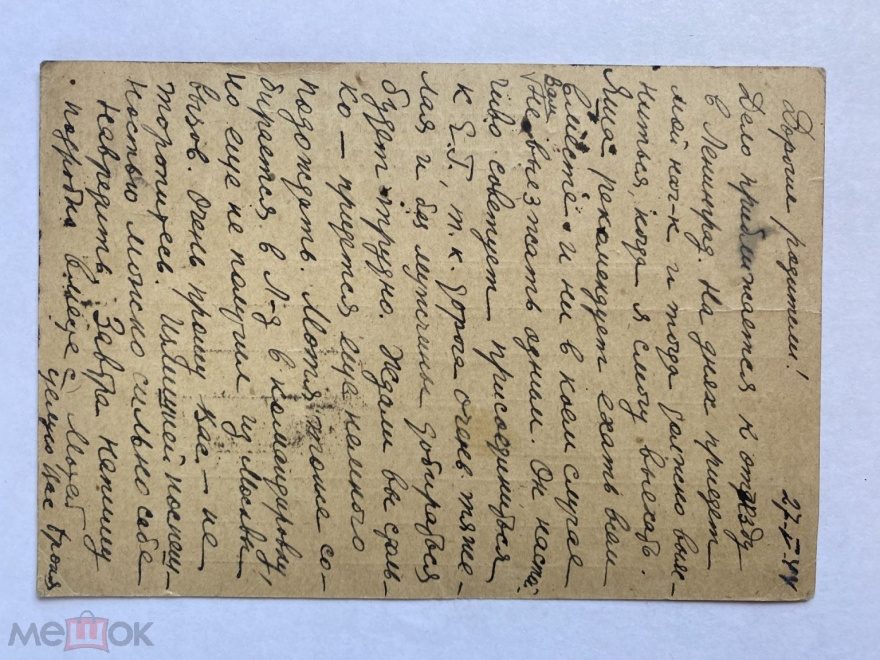 27-V-44
Дорогие родители!
Дело приближается к отъезду
в Ленинград. На днях приедет
мой нач-к и тогда должно выяс-
ниться, когда я смогу выехать.
Яша рекомендует ехать всем
вместе и ни в коем случае
Вам
не выезжать одним. Он настой-
чиво советует присоединиться
к Е.Г., т.к. дорога очень тяже-
лая и без мужчины добираться
будет трудно. Ждали вы столь-
ко – придется еще немного
подождать. Мотя тоже со-
бирается в Л-д в командировку,
но еще не получил из Москвы
вызов. Очень прошу Вас – не
торопитесь. Излишней поспеш-
ностью можно сильно себе
навредить. Завтра напишу
подробно вместе с Мотей
целую Вас
мешок